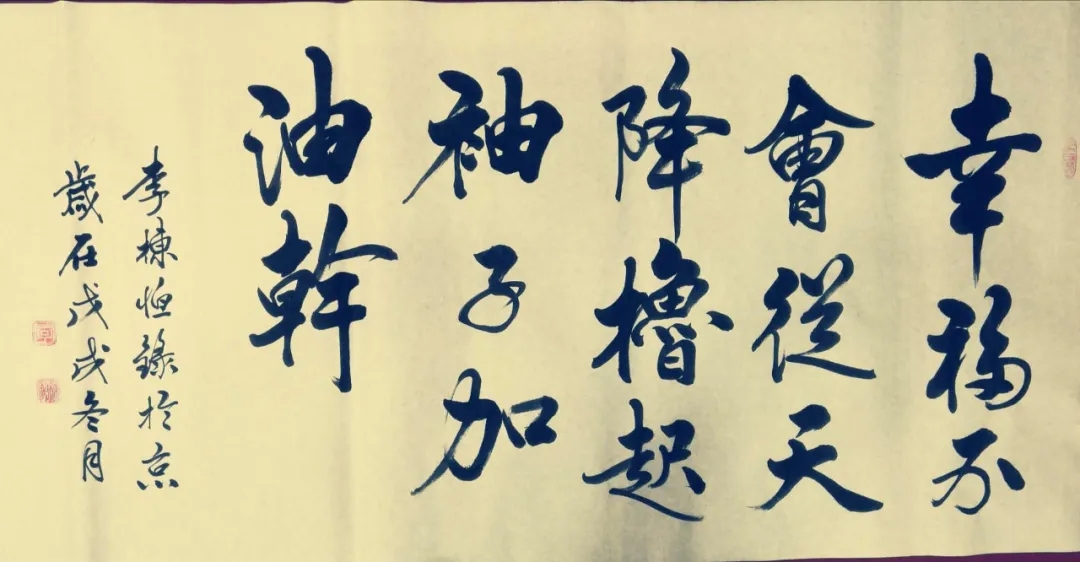 幸福不
會從天
降櫓起
袖子加
油幹
李棟恒錄於京
歲在戊戌冬月